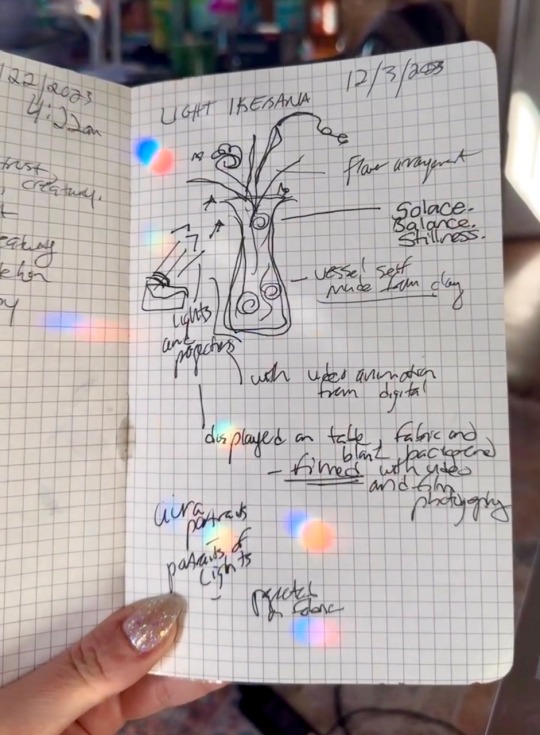 /22/2023
4:22am
trust
creating
LIGHT IKEBANA
12/3/2023
flower arrangement
Solace.
Balance.
Stillness.
vessel self
made from clay
Lights
and
projectors
with video animation
from digital
displayed on table, fabric and
blank background
- filmed with video
and film
photography
aura
portraits
-
portraits of
Lights
-
fabric